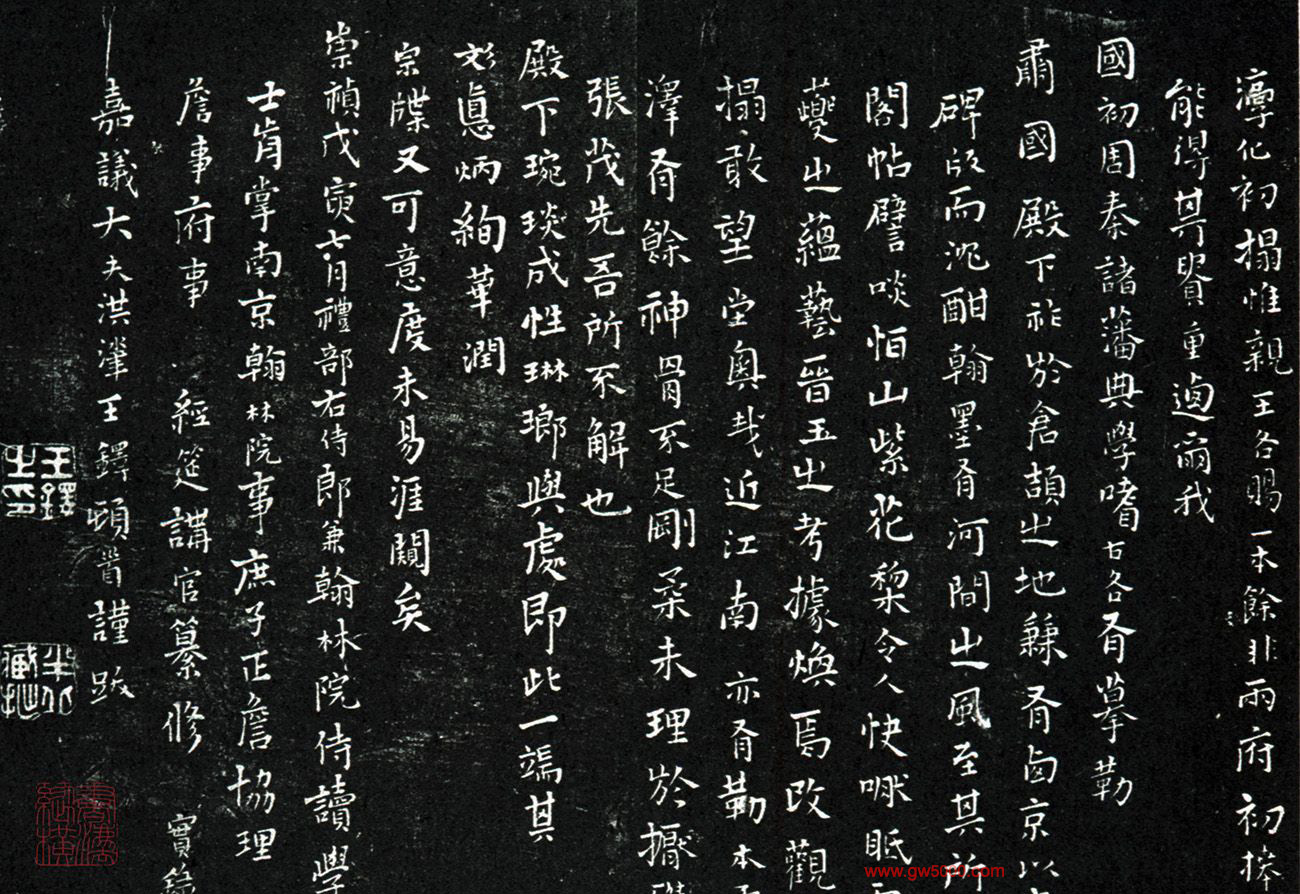 淳化初搨惟親王各賜一本餘非兩府初捧
能得其貴重迺爾我
國初周秦諸藩典學嗜古各有摹勒
肅國殿下祚於倉頡之地兼有卤京以
碑版而沈酣翰墨有河間之風至其所
閣帖譬啖怕山紫花棃令人快
夔之蘊藝晉玉之考據煥焉改觀
搨敢望堂奥哉近江南亦有勒本
澤有餘神骨不足剛柔未理於
張茂先吾所不解也
殿下琬琰成性琳瑯與處即此一端其
炳絢華潤
宗牒又可意度未易涯闚矣
崇禎戊寅七月禮部右侍郎兼翰林院侍讀學
士肯掌南京翰林院事庶子正詹協理
詹事府事 經筵講官纂修 實錄
嘉議大夫洪王鐸頓首謹跋
王鐸之印
www.gw5000.com